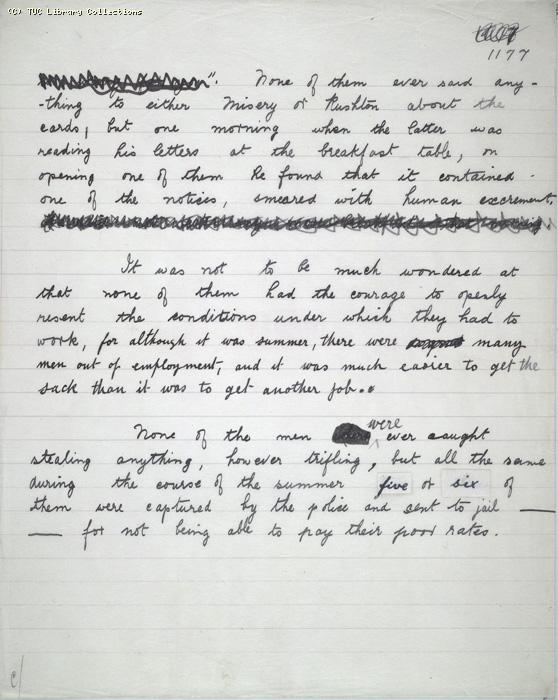 (C) TUC Library Collections
1177
". None of them ever said any-
-thing to either Misery or Rushton about the
cards, but one morning when the latter was
reading his letters at the breakfast table, on
opening one of them he found that it contained
one of the notices, smeared with human excrement.
It was not to be much wondered at
that none of them had the courage to openly
resent the conditions under which they had to
work, for although it was summer, there were many
men out of employment, and it was much easier to get the
sack than it was to get another job.
were
None of the men ever caught
stealing anything, however trifling, but all the same
during the course of the summer five or six of
them were captured by the police and sent to jail —
— for not being able to pay their poor rates.